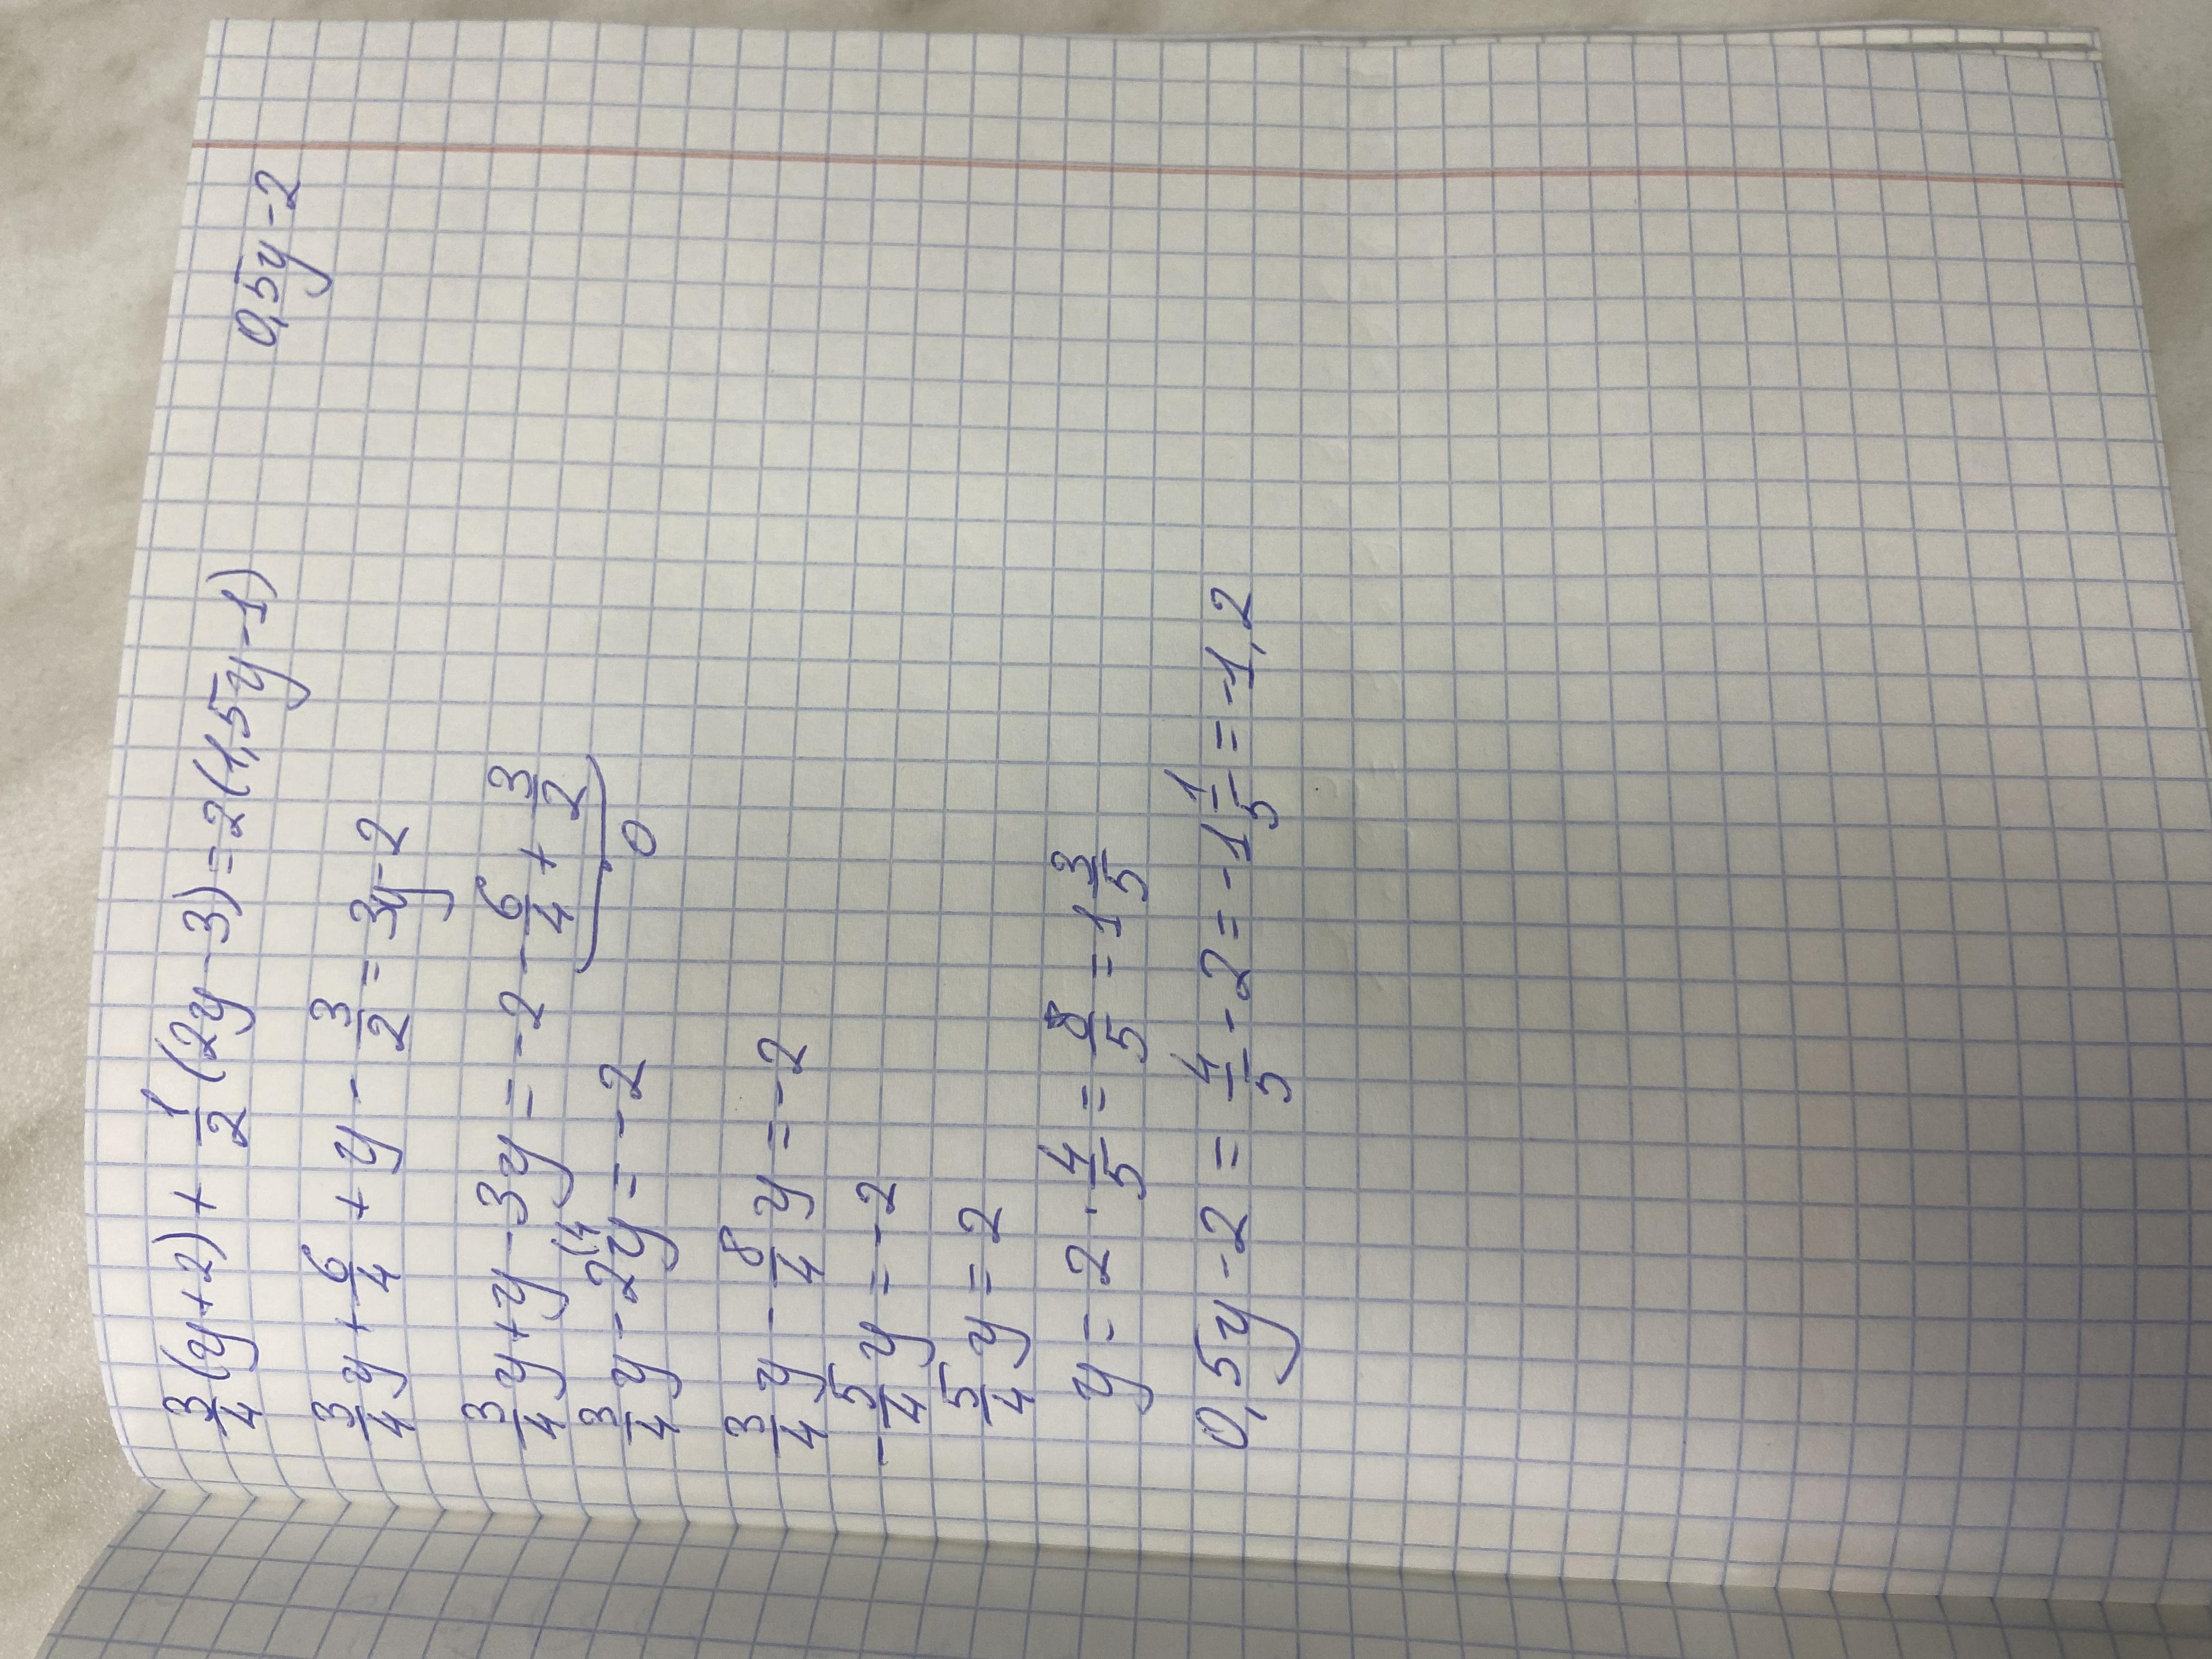 3/4(y+2) + 1/2(2y-3) = 2(1,5y-1) 0,5y-2
3/4y + 6/4 + y - 3/2 = 3y-2
3/4y + y - 3y = -2 - 6/4 + 3/2
0
3/4y - 2y = -2
3/4y - 8/4y = -2
-5/4y = -2
5/4y = 2
y = 2 · 4/5 = 8/5 = 1 3/5
0,5y - 2 = 4/5 - 2 = -1 1/5 = -1,2